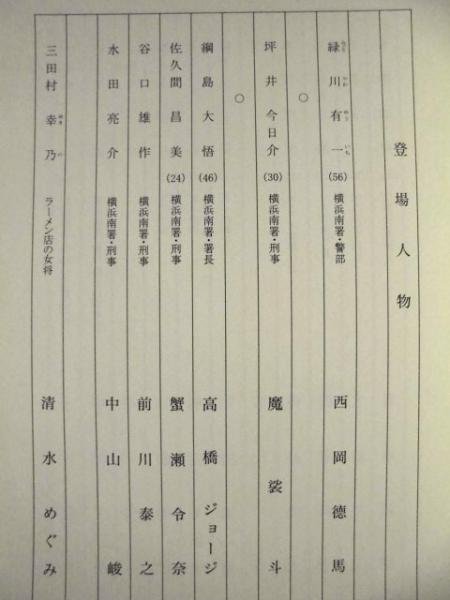 登場人物
緑川有一(56) 横浜南署・警部 西岡德馬
みどりかわゆういち
○
坪井今日介(30) 横浜南署・刑事 魔裟斗
○
綱島大悟(46) 横浜南署・署長 高橋ジョージ
佐久間昌美(24) 横浜南署・刑事 蟹瀬令奈
谷口雄作 横浜南署・刑事 前川泰之
水田亮介 横浜南署・刑事 中山峻
三田村幸乃 ラーメン店の女将 清水めぐみ
ゆきの